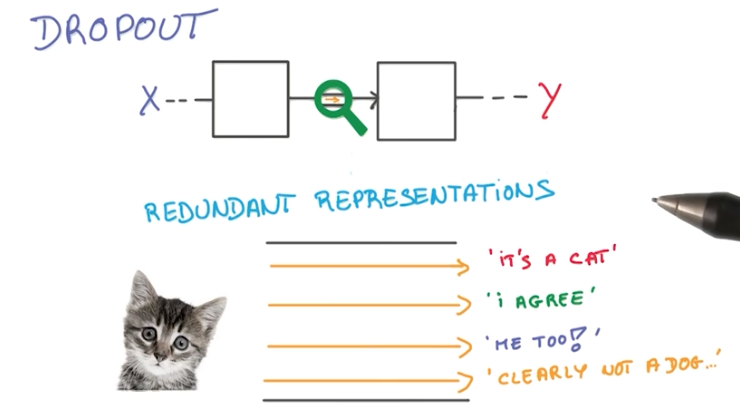 DROPOUT
X Y
REDUNDANT REPRESENTATIONS
'iT'S A CAT'
'i AGREE'
'ME TOO!'
'CLEARLY NOT A DOG...'